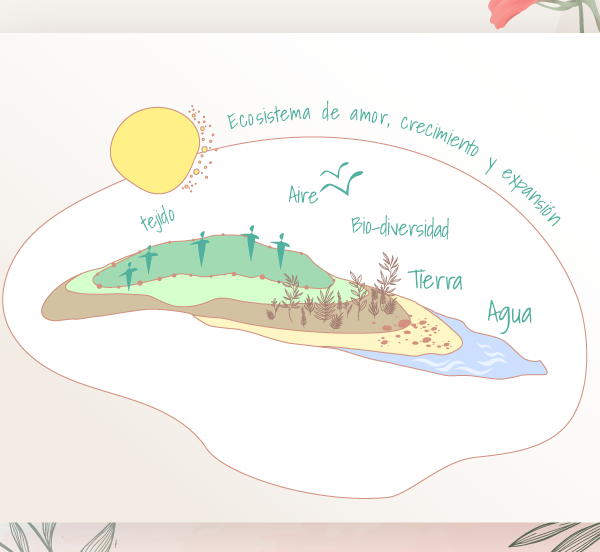 Ecosistema de amor, crecimiento y expansión
Aire
tejido
Bio-diversidad
Tierra
Agua